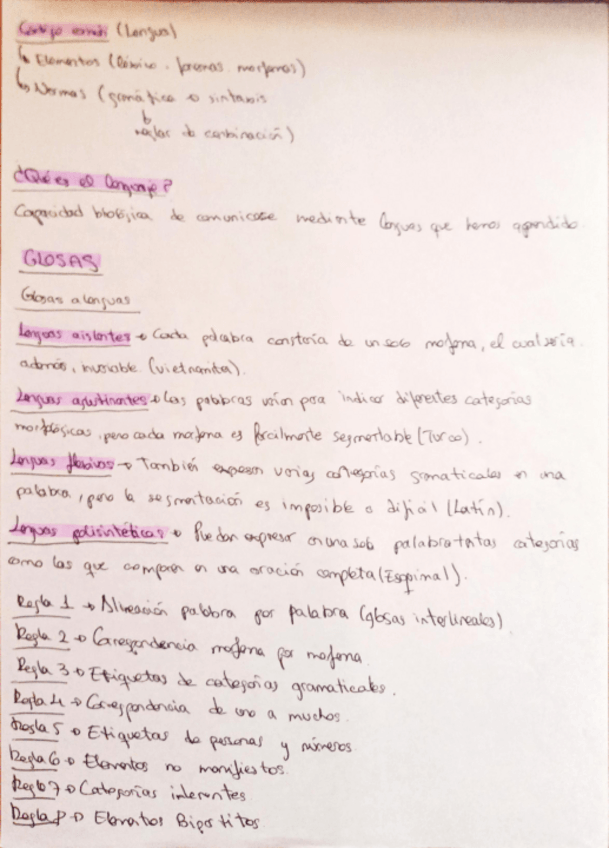 Código común (Lengua)
↳ Elementos (léxico, fonemas, morfemas)
↳ Normas (gramática o sintaxis
↳
reglas de combinación)
¿Qué es el lenguaje?
Capacidad biológica de comunicarse mediante lenguas que hemos aprendido.
GLOSAS
Glosas a lenguas
Lenguas aislantes → Cada palabra constaría de un solo morfema, el cual sería
además, invariable. (vietnamita).
Lenguas aglutinantes → Las palabras varían para indicar diferentes categorías
morfológicas, pero cada morfema es fácilmente segmentable (Turco).
Lenguas flexivas → También expresan varias categorías gramaticales en una
palabra, pero la segmentación es imposible o difícil (Latín).
Lenguas polisintéticas → Pueden expresar en una sola palabra tantas categorías
como las que componen en una oración completa (Esquimal).
Regla 1 → Alineación palabra por palabra (glosas interlineales)
Regla 2 → Correspondencia morfema por morfema
Regla 3 → Etiquetas de categorías gramaticales.
Regla 4 → Correspondencia de uno a muchos.
Regla 5 → Etiquetas de personas y números.
Regla 6 → Elementos no manifiestos.
Regla 7 → Categorías inherentes
Regla 8 → Elementos Bipartitos